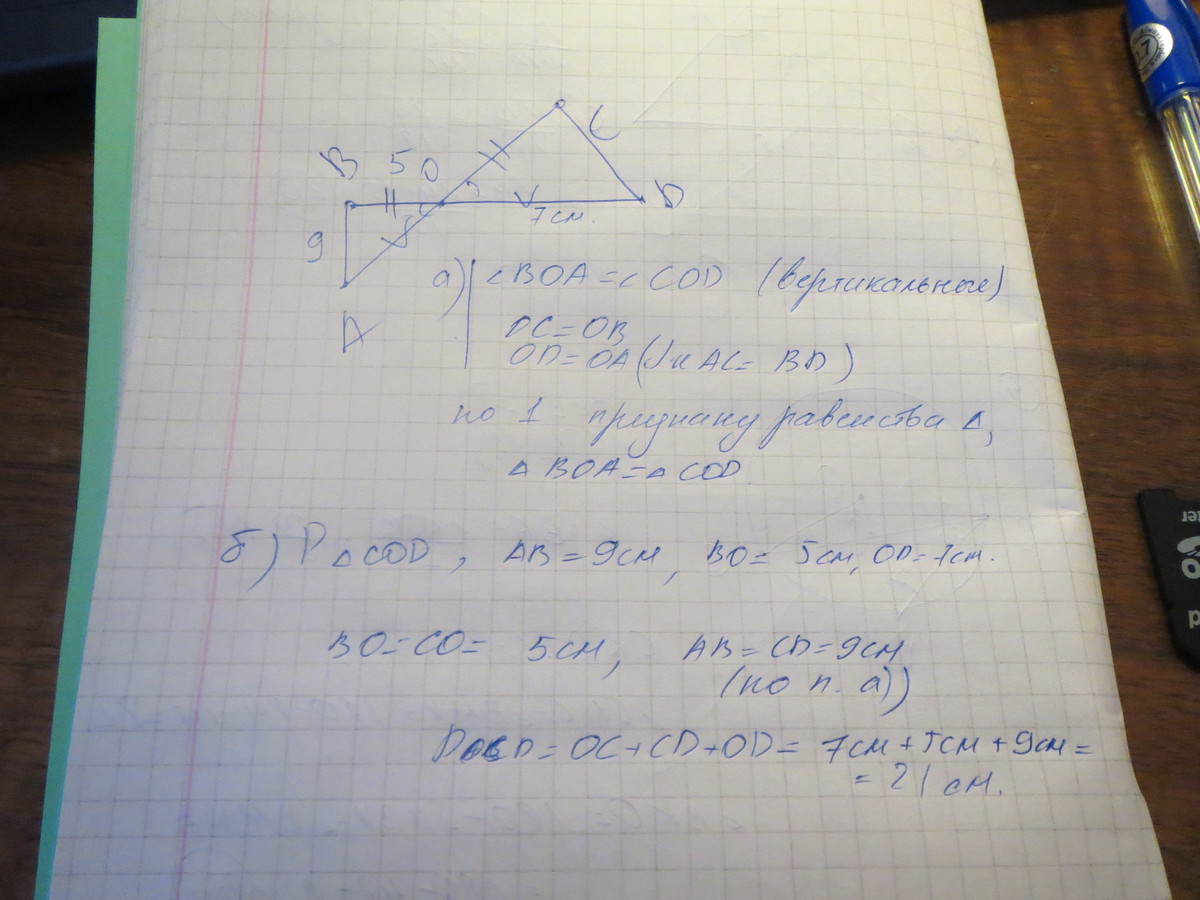 C
B 5 O
D
7см.
9
A
а) ∠BOA=∠COD (вертикальные)
OC=OB
OD=OA (т.к AC= BD)
по 1 признаку равенства Δ,
Δ BOA=Δ COD.
б) P Δ COD, AB = 9см, BO= 5см, OD=7см.
BO=CO= 5см, AB= CD=9см
(по п. а))
= OC+CD+OD= 7см+5см+9см=
= 21 см.